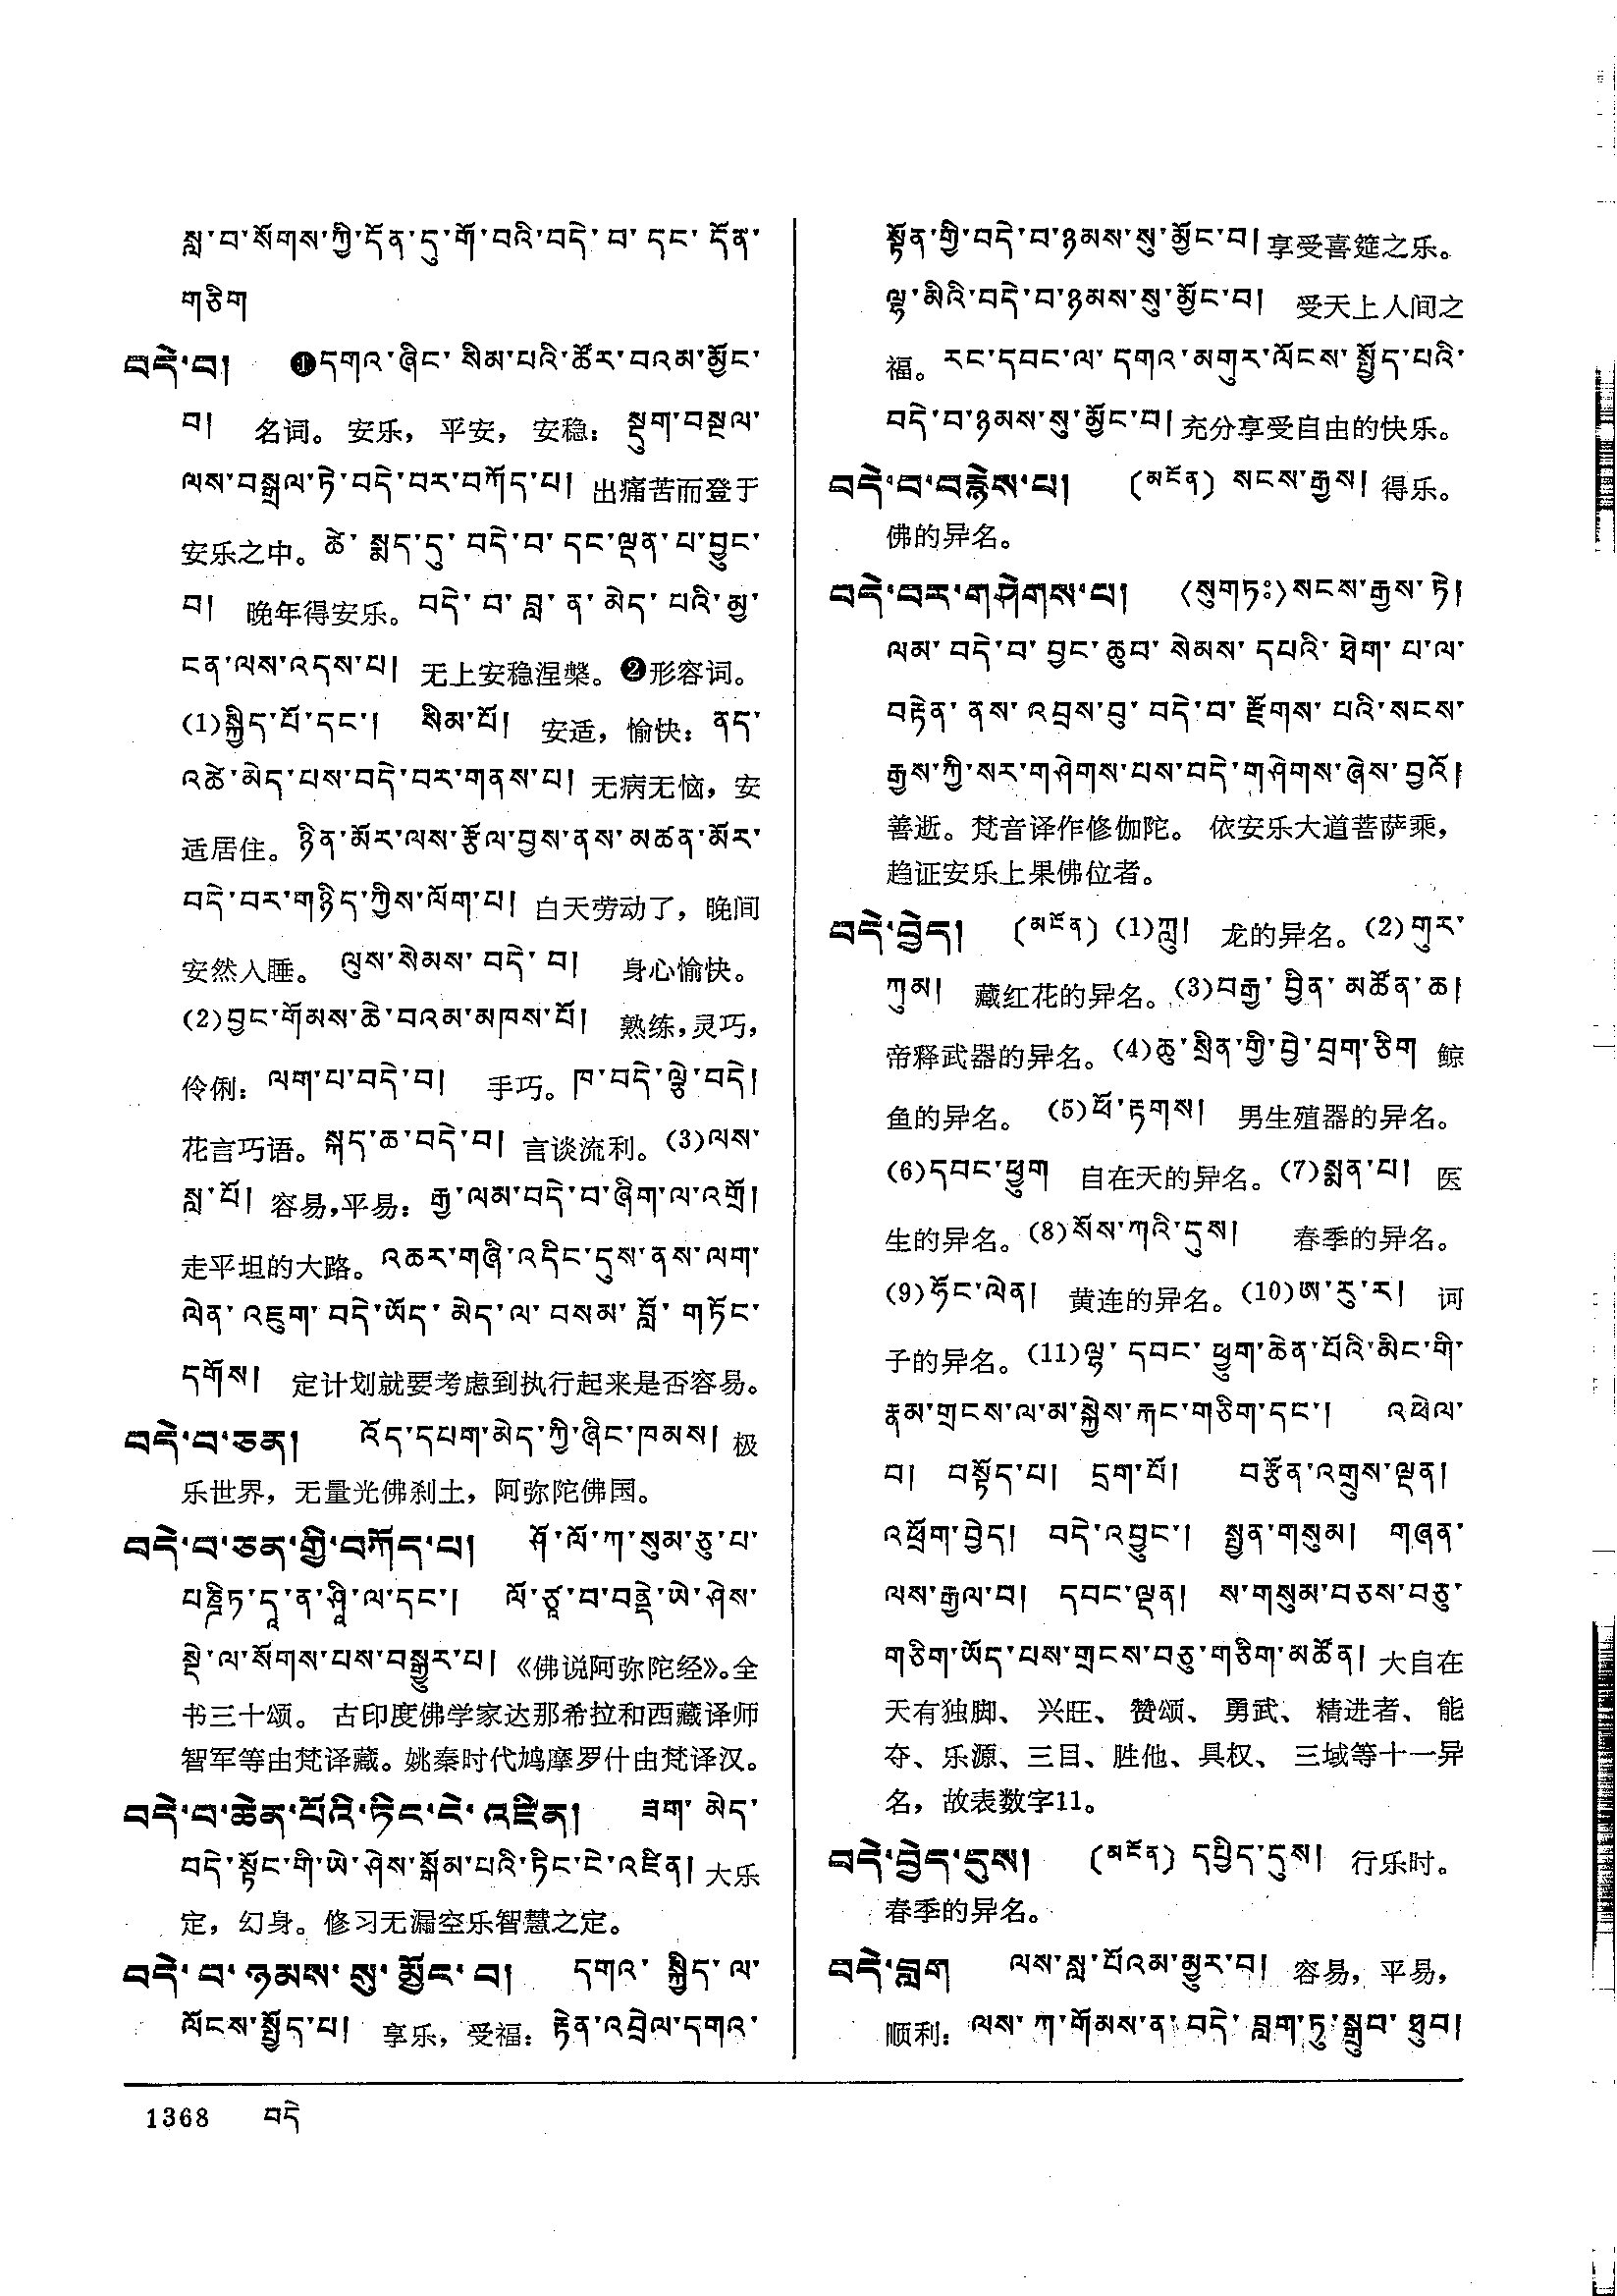 སླ་བ་སོགས་ཀྱི་དོན་དུ་གོ་བའི་བདེ་བ་དང་དོན་
གཅིག
བདེ་བ། ❶དགའ་ཞིང་སིམ་པའི་ཚོར་བའམ་མྱོང་
བ། 名词。安乐，平安，安稳：སྡུག་བསྔལ་
ལས་བསྒྲལ་ཏེ་བདེ་བར་བཀོད་པ། 出痛苦而登于
安乐之中。ཚེ་སྨད་དུ་བདེ་བ་དང་ལྡན་པ་བྱུང་
བ། 晚年得安乐。བདེ་བ་བླ་ན་མེད་པའི་མྱ་
ངན་ལས་འདས་པ། 无上安稳涅槃。❷形容词。
(1)སྐྱིད་པོ་དང་། སིམ་པོ། 安适，愉快：ནད་
འཚེ་མེད་པས་བདེ་བར་གནས་པ། 无病无恼，安
适居住。ཉིན་མོར་ལས་རྩོལ་བྱས་ནས་མཚན་མོར་
བདེ་བར་གཉིད་ཀྱིས་ལོག་པ། 白天劳动了，晚间
安然入睡。 ལུས་སེམས་བདེ་བ། 身心愉快。
(2)བྱང་གོམས་ཆེ་བའམ་མཁས་པོ། 熟练，灵巧，
伶俐：ལག་པ་བདེ་བ། 手巧。ཁ་བདེ་ལྕེ་བདེ།
花言巧语。སྐད་ཆ་བདེ་བ། 言谈流利。(3)ལས་
སླ་པོ། 容易，平易：རྒྱ་ལམ་བདེ་བ་ཞིག་ལ་འགྲོ།
走平坦的大路。འཆར་གཞི་འདིང་དུས་ནས་ལག་
ལེན་འཇུག་བདེ་ཡོད་མེད་ལ་བསམ་བློ་གཏོང་
དགོས། 定计划就要考虑到执行起来是否容易。
བདེ་བ་ཅན། འོད་དཔག་མེད་ཀྱི་ཞིང་ཁམས། 极
乐世界，无量光佛刹土，阿弥陀佛国。
བདེ་བ་ཅན་གྱི་བཀོད་པ། ཤོ་ལོ་ཀ་སུམ་ཅུ་པ་
པཎྜིཏ་དཱ་ན་ཤཱི་ལ་དང་། ལོ་ཙཱ་བ་བནྡེ་ཡེ་ཤེས་
སྡེ་ལ་སོགས་པས་བསྒྱུར་པ། 《佛说阿弥陀经》。全
书三十颂。 古印度佛学家达那希拉和西藏译师
智军等由梵译藏。姚秦时代鸠摩罗什由梵译汉。
བདེ་བ་ཆེན་པོའི་ཏིང་ངེ་འཛིན། ཟག་མེད་
བདེ་སྟོང་གི་ཡེ་ཤེས་སྒོམ་པའི་ཏིང་ངེ་འཛིན། 大乐
定，幻身。修习无漏空乐智慧之定。
བདེ་བ་ཉམས་སུ་མྱོང་བ། དགའ་སྐྱིད་ལ་
ལོངས་སྤྱོད་པ། 享乐，受福：རྟེན་འབྲེལ་དགའ་
སྟོན་གྱི་བདེ་བ་ཉམས་སུ་མྱོང་བ། 享受喜筵之乐。
ལྷ་མིའི་བདེ་བ་ཉམས་སུ་མྱོང་བ། 受天上人间之
福。རང་དབང་ལ་དགའ་མགུར་ལོངས་སྤྱོད་པའི་
བདེ་བ་ཉམས་སུ་མྱོང་བ། 充分享受自由的快乐。
བདེ་བ་བརྙེས་པ། (མངོན) སངས་རྒྱས། 得乐。
佛的异名。
བདེ་བར་གཤེགས་པ། 〈སུགཏཿ〉སངས་རྒྱས་ཏེ།
ལམ་བདེ་བ་བྱང་ཆུབ་སེམས་དཔའི་ཐེག་པ་ལ་
བརྟེན་ནས་འབྲས་བུ་བདེ་བ་རྫོགས་པའི་སངས་
རྒྱས་ཀྱི་སར་གཤེགས་པས་བདེ་གཤེགས་ཞེས་བྱའོ།
善逝。梵音译作修伽陀。 依安乐大道菩萨乘，
趋证安乐上果佛位者。
བདེ་བྱེད། (མངོན) (1)ཀླུ། 龙的异名。(2)གུར་
ཀུམ། 藏红花的异名。(3)བརྒྱ་བྱིན་མཚོན་ཆ།
帝释武器的异名。(4)ཆུ་སྲིན་གྱི་བྱེ་བྲག་ཅིག 鲸
鱼的异名。 (5)ཕོ་རྟགས། 男生殖器的异名。
(6)དབང་ཕྱུག 自在天的异名。(7)སྨན་པ། 医
生的异名。(8)སོས་ཀའི་དུས། 春季的异名。
(9)ཧོང་ལེན། 黄连的异名。(10)ཨ་རུ་ར། 诃
子的异名。(11)ལྷ་དབང་ཕྱུག་ཆེན་པོའི་མིང་གི་
རྣམ་གྲངས་ལ་མ་སྐྱེས་རྐང་གཅིག་དང་། འཕེལ་
བ། བསྟོད་པ། དྲག་པོ། བརྩོན་འགྲུས་ལྡན།
འཕྲོག་བྱེད། བདེ་འབྱུང་། སྤྱན་གསུམ། གཞན་
ལས་རྒྱལ་བ། དབང་ལྡན། ས་གསུམ་བཅས་བཅུ་
གཅིག་ཡོད་པས་གྲངས་བཅུ་གཅིག་མཚོན། 大自在
天有独脚、 兴旺、 赞颂、 勇武、 精进者、 能
夺、乐源、三目、胜他、具权、 三域等十一异
名，故表数字11。
བདེ་བྱེད་དུས། (མངོན) དཔྱིད་དུས། 行乐时。
春季的异名。
བདེ་བླག ལས་སླ་པོའམ་མྱུར་བ། 容易，平易，
顺利：ལས་ཀ་གོམས་ན་བདེ་བླག་ཏུ་སྒྲུབ་ཐུབ།
1368 བདེ